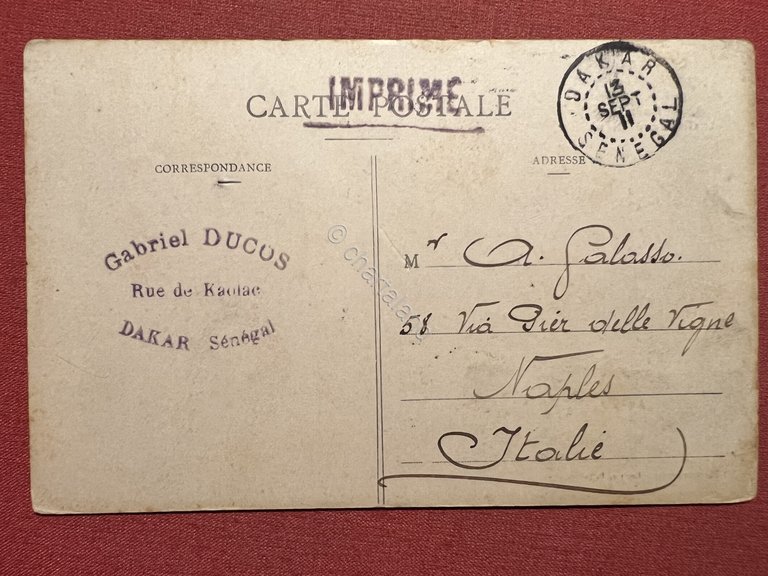 IMPRIMÉ
CARTE POSTALE
DAKAR
13
SEPT
11
SENEGAL
CORRESPONDANCE
ADRESSE
Gabriel DUCOS
Rue de Kaolac
DAKAR Sénégal
Mr A. Galasso.
58 Via Pier delle Vigne
Naples
Italie
© chagala